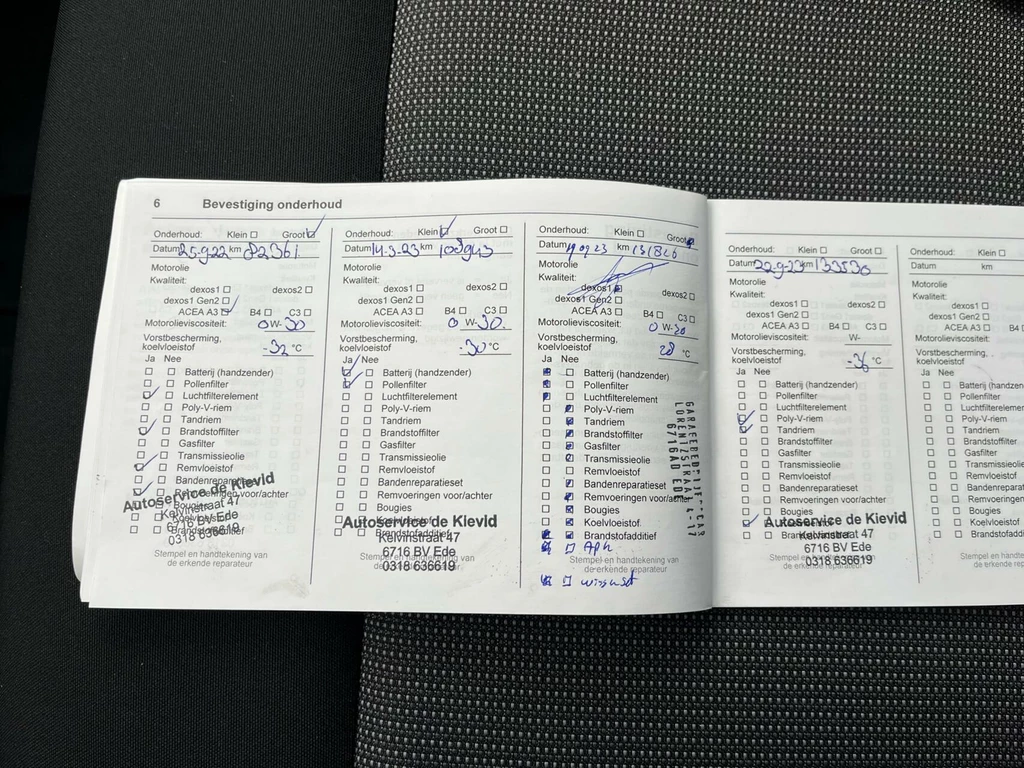 6 Bevestiging onderhoud
Onderhoud: Klein Groot
Datum 25-9-22 km 82361
Motorolie
Kwaliteit:
dexos1 dexos2
dexos1 Gen2
ACEA A3 B4 C3
Motorolieviscositeit: 0 W-30
Vorstbescherming,
koelvloeistof -32 °C
Ja Nee
Batterij (handzender)
Pollenfilter
Luchtfilterelement
Poly-V-riem
Tandriem
Brandstoffilter
Gasfilter
Transmissieolie
Remvloeistof
Bandenreparatieset
Remvoeringen voor/achter
Bougies
Koelvloeistof
Brandstofadditief
Autoservice de Kievid
Kelvinstraat 47
6716 BV Ede
0318 636619
Stempel en handtekening van
de erkende reparateur
Onderhoud: Klein Groot
Datum 14-3-23 km 108943
Motorolie
Kwaliteit:
dexos1 dexos2
dexos1 Gen2
ACEA A3 B4 C3
Motorolieviscositeit: 0 W-30.
Vorstbescherming,
koelvloeistof -30 °C
Ja Nee
Batterij (handzender)
Pollenfilter
Luchtfilterelement
Poly-V-riem
Tandriem
Brandstoffilter
Gasfilter
Transmissieolie
Remvloeistof
Bandenreparatieset
Remvoeringen voor/achter
Bougies
Koelvloeistof
Brandstofadditief
Autoservice de Kievid
Kelvinstraat 47
6716 BV Ede
0318 636619
Stempel en handtekening van
de erkende reparateur
Onderhoud: Klein Groot
Datum 19 09 23 km 131826
Motorolie
Kwaliteit:
dexos1 dexos2
dexos1 Gen2
ACEA A3 B4 C3
Motorolieviscositeit: 0 W-20
Vorstbescherming,
koelvloeistof 28 °C
Ja Nee
Batterij (handzender)
Pollenfilter
Luchtfilterelement
Poly-V-riem
Tandriem
Brandstoffilter
Gasfilter
Transmissieolie
Remvloeistof
Bandenreparatieset
Remvoeringen voor/achter
Bougies
Koelvloeistof
Brandstofadditief
APK
Stempel en handtekening van
de erkende reparateur
LORENTZSTRAAT
6716AD EDE
Onderhoud: Klein Groot
Datum 22-9-23 km 133530
Motorolie
Kwaliteit:
dexos1 dexos2
dexos1 Gen2
ACEA A3 B4 C3
Motorolieviscositeit: W-
Vorstbescherming,
koelvloeistof -36 °C
Ja Nee
Batterij (handzender)
Pollenfilter
Luchtfilterelement
Poly-V-riem
Tandriem
Brandstoffilter
Gasfilter
Transmissieolie
Remvloeistof
Bandenreparatieset
Remvoeringen voor/achter
Bougies
Koelvloeistof
Brandstofadditief
Autoservice de Kievid
Kelvinstraat 47
6716 BV Ede
0318 636619
Stempel en handtekening van
de erkende reparateur
Onderhoud: Klein
Datum km
Motorolie
Kwaliteit:
dexos1
dexos1 Gen2
ACEA A3
Motorolieviscositeit:
Vorstbescherming,
koelvloeistof
Ja Nee
Batterij (handz
Pollenfilter
Luchtfiltereleme
Poly-V-riem
Tandriem
Brandstoffilter
Gasfilter
Transmissieolie
Remvloeistof
Bandenreparat
Remvoeringen v
Bougies
Koelvloeistof
Brandstofadditi
Stempel en handte
de erkende r